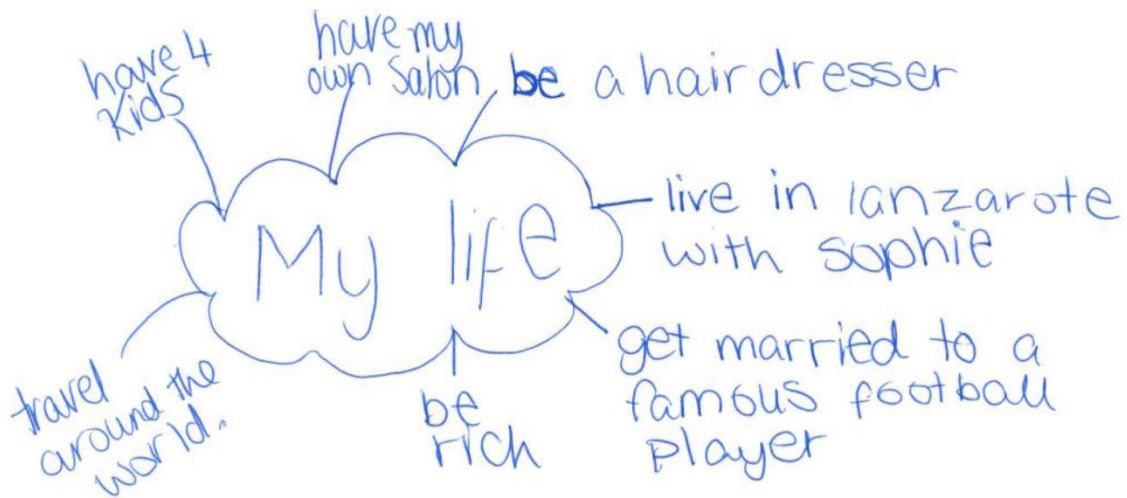 My life
have 4
kids
have my
own salon
be a hairdresser
live in lanzarote
with sophie
get married to a
famous football
player
be
rich
travel
around the
world.